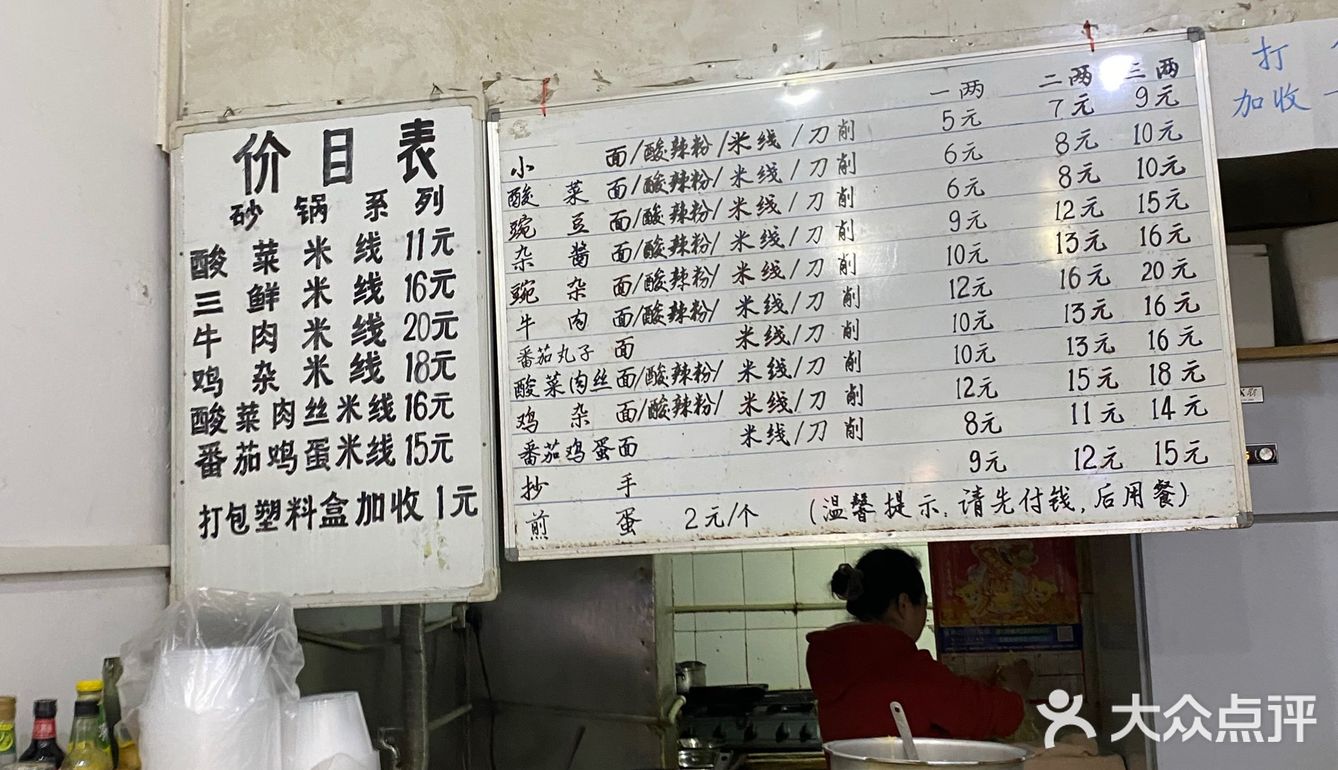 价目表
砂锅系列
酸菜米线11元
三鲜米线16元
牛肉米线20元
鸡杂米线18元
酸菜肉丝米线16元
番茄鸡蛋米线15元
打包塑料盒加收1元
一两 二两 三两
小面/酸辣粉/米线/刀削 5元 7元 9元
酸菜面/酸辣粉/米线/刀削 6元 8元 10元
豌豆面/酸辣粉/米线/刀削 6元 8元 10元
杂酱面/酸辣粉/米线/刀削 9元 12元 15元
豌杂面/酸辣粉/米线/刀削 10元 13元 16元
牛肉面/酸辣粉/米线/刀削 12元 16元 20元
番茄丸子面 米线/刀削 10元 13元 16元
酸菜肉丝面/酸辣粉/米线/刀削 10元 13元 16元
鸡杂面/酸辣粉/米线/刀削 12元 15元 18元
番茄鸡蛋面 米线/刀削 8元 11元 14元
抄手 9元 12元 15元
煎蛋 2元/个 (温馨提示,请先付钱,后用餐)
打
加收
大众点评